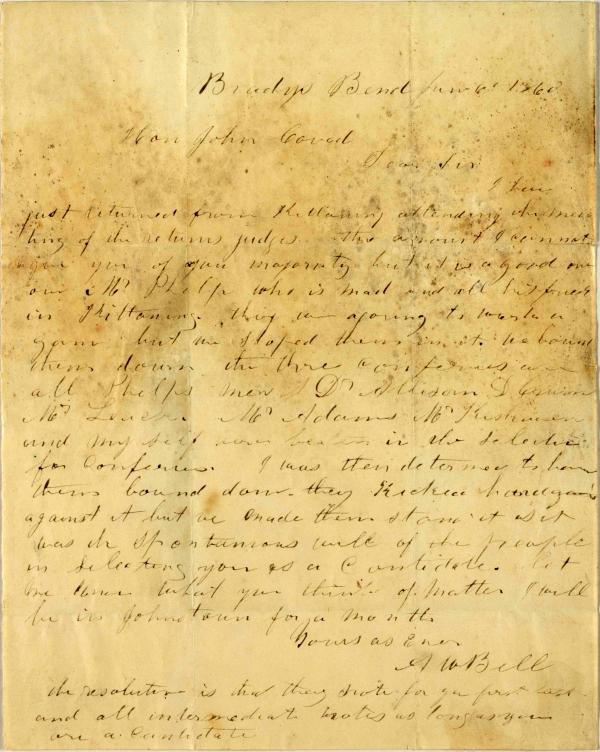 Bradys Bend Jun 6th 1860
Hon John Covod
Dear Sir
I have
just returned from Kittaning attending the mee
ting of the return judges. the amount I cannot
give you of your majority but it is a good one
over Mr Phelps who is mad and all his forces
in Kittaning. they we agoing to work a
gam but we stoped them in it. we bound
them down the thre conferees are
all Phelps men Dr Allison D
Mr Mr Adams Mr
and my self were beaten in the selectio
for conferees. I was then determed to have
them bound down. they Kicked hard again
against it but we made them stand it as it
was the spontunious will of the people
in selecting you as a Cantidate. let
me know what you think of matter I will
be in Johnstown for a month
Yours as Ever
A W Bell
the resolution is that they vote for you first last
and all intermediate votes as long as you
are a Cantidate